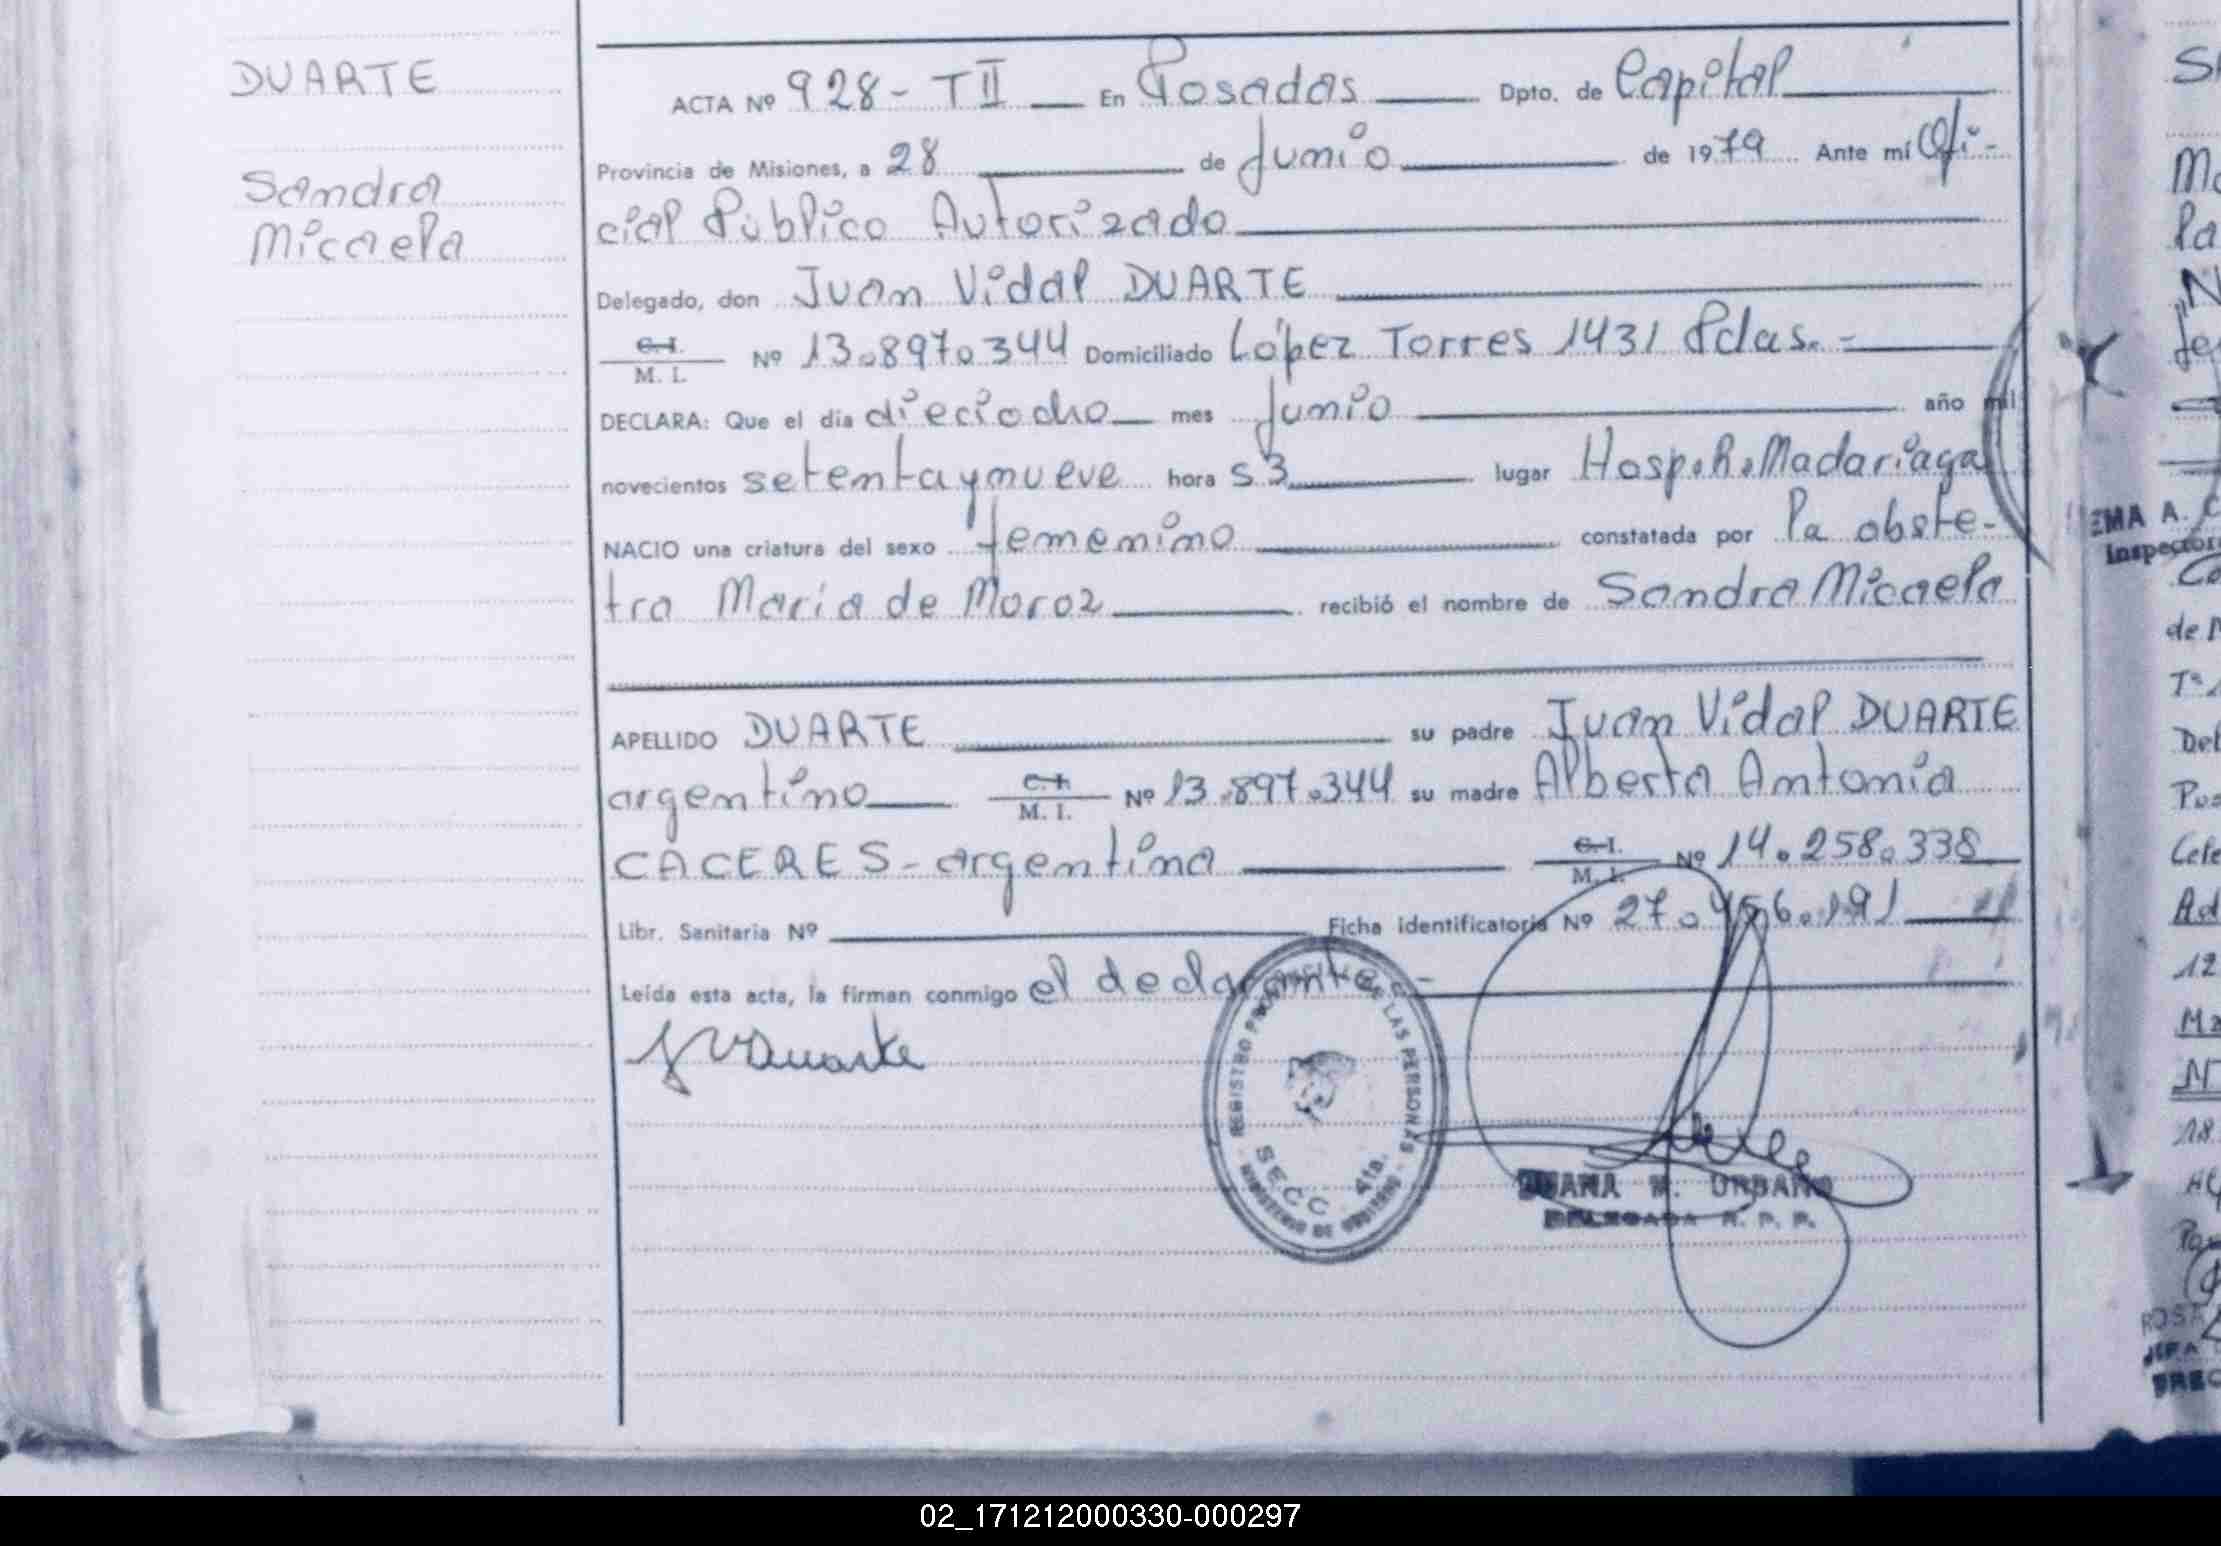 DUARTE
Sandra
Micaela
ACTA Nº 928- TII En Posadas Dpto. de Capital
Provincia de Misiones, a 28 de Junio de 1979 Ante mí Ofi-
cial Público Autorizado
Delegado, don Juan Vidal DUARTE
C.I. M. I. Nº 13.897.344 Domiciliado López Torres 1431 Pdas.-
DECLARA: Que el día dieciocho mes Junio año mil
novecientos setenta y nueve hora s 3 lugar Hosp. R. Madariaga
NACIO una criatura del sexo femenino constatada por la obste-
tra María de Moroz recibió el nombre de Sandra Micaela
APELLIDO DUARTE su padre Juan Vidal DUARTE
argentino C.I. M. I. Nº 13.897.344 su madre Alberta Antonia
CACERES- argentina C.I. M. I. Nº 14.258.338
Libr. Sanitaria Nº Ficha identificatoria Nº 27.456.191
Leída esta acta, la firman conmigo el declarante.-
JVDuarte
REGISTRO PROVINCIAL DE LAS PERSONAS
SECC. 4ta.
MINISTERIO DE GOBIERNO
JUANA M. URBANO
DELEGADA R. P. P.
EMA A.
Inspector
de
02_171212000330-000297